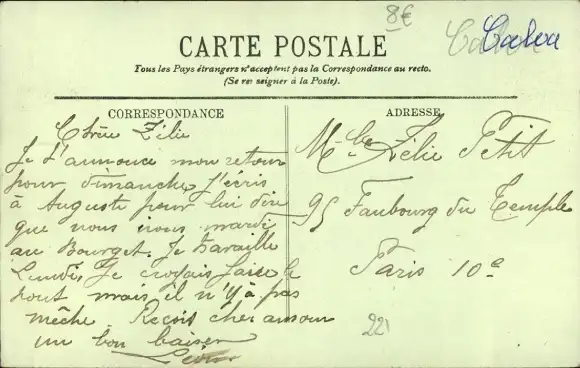 8€
Calou
Calou
CARTE POSTALE
Tous les Pays étrangers n'acceptent pas la Correspondance au recto.
(Se renseigner à la Poste).
CORRESPONDANCE
Chère Zélie
Je t'annonce mon retour
pour dimanche, j'écris
à Auguste pour lui dire
que nous irons mardi
au Bourget. Je travaille
Lundi, Je croyais faire le
pont mais il n'y a pas
mèche. Reçois cher amour
un bon baiser
ADRESSE
Mlle Zélie Petit
95 Faubourg du Temple
Paris 10e
221